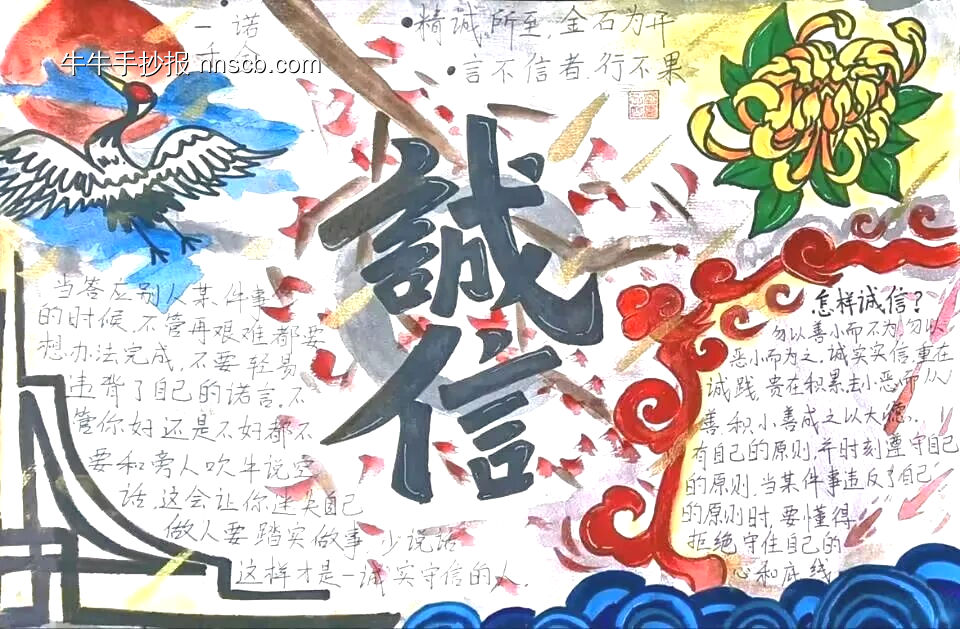 一诺
千金
牛牛手抄报 nnscb.com
•精诚所至,金石为开
•言不信者,行不果
誠
信
当答应别人某件事
的时候,不管再艰难都要
想办法完成,不要轻易
违背了自己的诺言。不
管你好还是不好都不
要和旁人吹牛说空
话,这会让你迷失自己
做人要踏实做事,少说话
这样才是一诚实守信的人.
怎样诚信?
勿以善小而不为,勿以
恶小而为之,诚实实信,重在
诚践,贵在积累去小恶而从
善,积小善成之以大德.
有自己的原则,并时刻遵守自己
的原则,当某件事违反了自己
的原则时,要懂得
拒绝守住自己的
心和底线